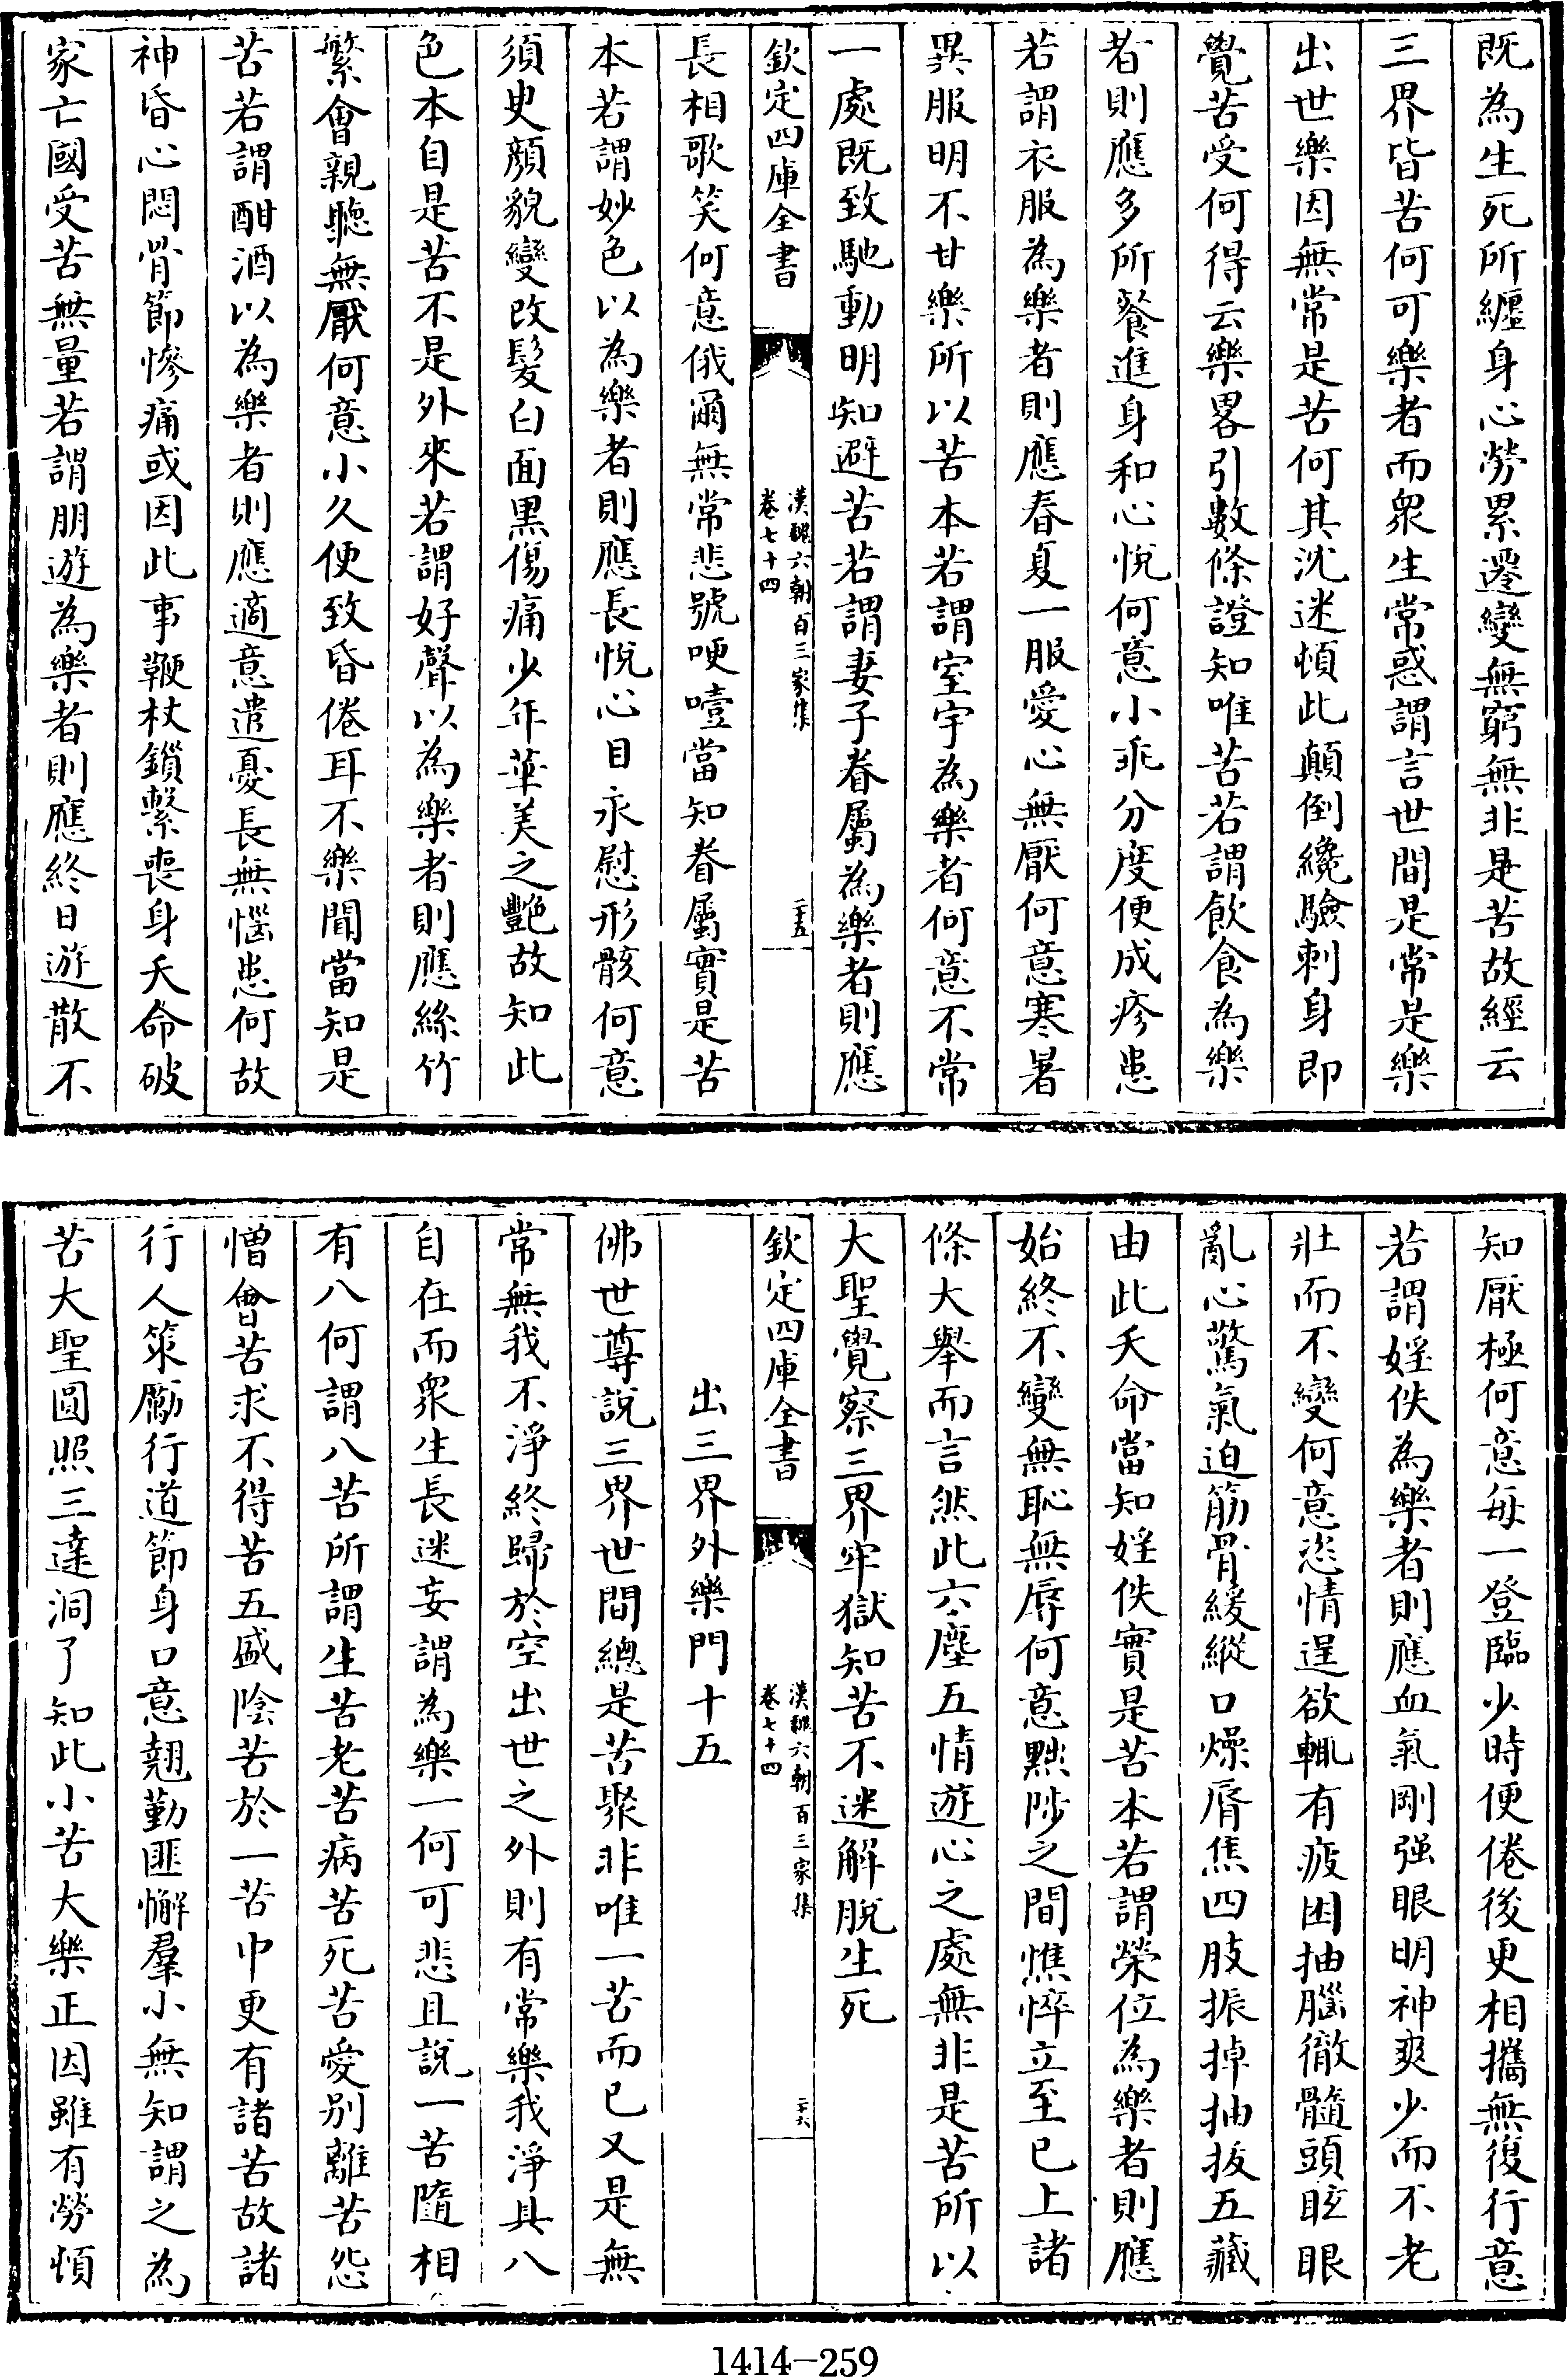 既為生死所纒身心勞累遷變無窮無非是苦故經云
三界皆苦何可樂者而衆生常惑謂言世間是常是樂
出世樂因無常是苦何其沈迷頓此顛倒纔驗刺身即
覺苦受何得云樂畧引數條證知唯苦若謂飲食為樂
者則應多所餐進身和心悅何意小乖分度便成疹患
若謂衣服為樂者則應春夏一服愛心無厭何意寒暑
異服明不甘樂所以苦本若謂室宇為樂者何意不常
一處既致馳動明知避苦若謂妻子眷屬為樂者則應
欽定四庫全書
漢魏六朝百三家集
卷七十四
二十五
長相歌笑何意俄爾無常悲號哽噎當知眷屬實是苦
本若謂妙色以為樂者則應長悅心目永慰形骸何意
須臾顔貌變改髮白面黒傷痛少年華美之艷故知此
色本自是苦不是外來若謂好聲以為樂者則應絲竹
繁會親聽無厭何意小久便致昏倦耳不樂聞當知是
苦若謂酣酒以為樂者則應適意遣憂長無惱患何故
神昏心悶骨節慘痛或因此事鞭杖鎖繫喪身夭命破
家亡國受苦無量若謂朋遊為樂者則應終日遊散不
知厭極何意每一登臨少時便倦後更相攜無復行意
若謂婬佚為樂者則應血氣剛强眼明神爽少而不老
壯而不變何意恣情逞欲輒有疲困抽腦徹髓頭眩眼
亂心驚氣迫筋骨緩縱口燥脣焦四肢振掉抽拔五藏
由此夭命當知婬佚實是苦本若謂榮位為樂者則應
始終不變無恥無辱何意黜陟之間憔悴立至已上諸
條大舉而言然此六塵五情遊心之處無非是苦所以
大聖覺察三界牢獄知苦不迷解脫生死
欽定四庫全書
漢魏六朝百三家集
卷七十四
二十六
出三界外樂門十五
佛世尊說三界世間總是苦聚非唯一苦而已又是無
常無我不淨終歸於空出世之外則有常樂我淨具八
自在而衆生長迷妄謂為樂一何可悲且說一苦隨相
有八何謂八苦所謂生苦老苦病苦死苦愛别離苦怨
憎會苦求不得苦五盛陰苦於一苦中更有諸苦故諸
行人策勵行道節身口意翹勤匪懈羣小無知謂之為
苦大聖圓照三達洞了知此小苦大樂正因雖有勞頓
1414-259